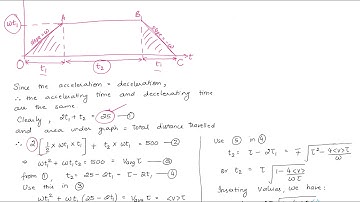 ωt₁
A
B
slope = ω
slope = -ω
O
t₁
t₂
t₁
C
t
Since the acceleration = deceleration,
∴ the accelerating time and decelerating time
are the same.
Clearly, 2t₁ + t₂ = 25 - ①
and area under graph = Total distance travelled
∴ 2 [½ × ωt₁ × t₁] + t₂ × ωt₁ = 500 - ②
⇒ ωt₁² + ωt₁t₂ = 500 = Vavg τ - ③
from ①, t₂ = 25 - 2t₁ = τ - 2t₁ - ④
Use this in ③
⇒ ωt₁² + ωt₁ (25 - 2t₁) = Vavg τ = <v>τ
Use ⑤ in ④
t₂ = τ - 2t₁ = √τ² - 4<v>τ/ω
or t₂ = τ √1 - 4<v>/ωτ
Inserting values, we have: